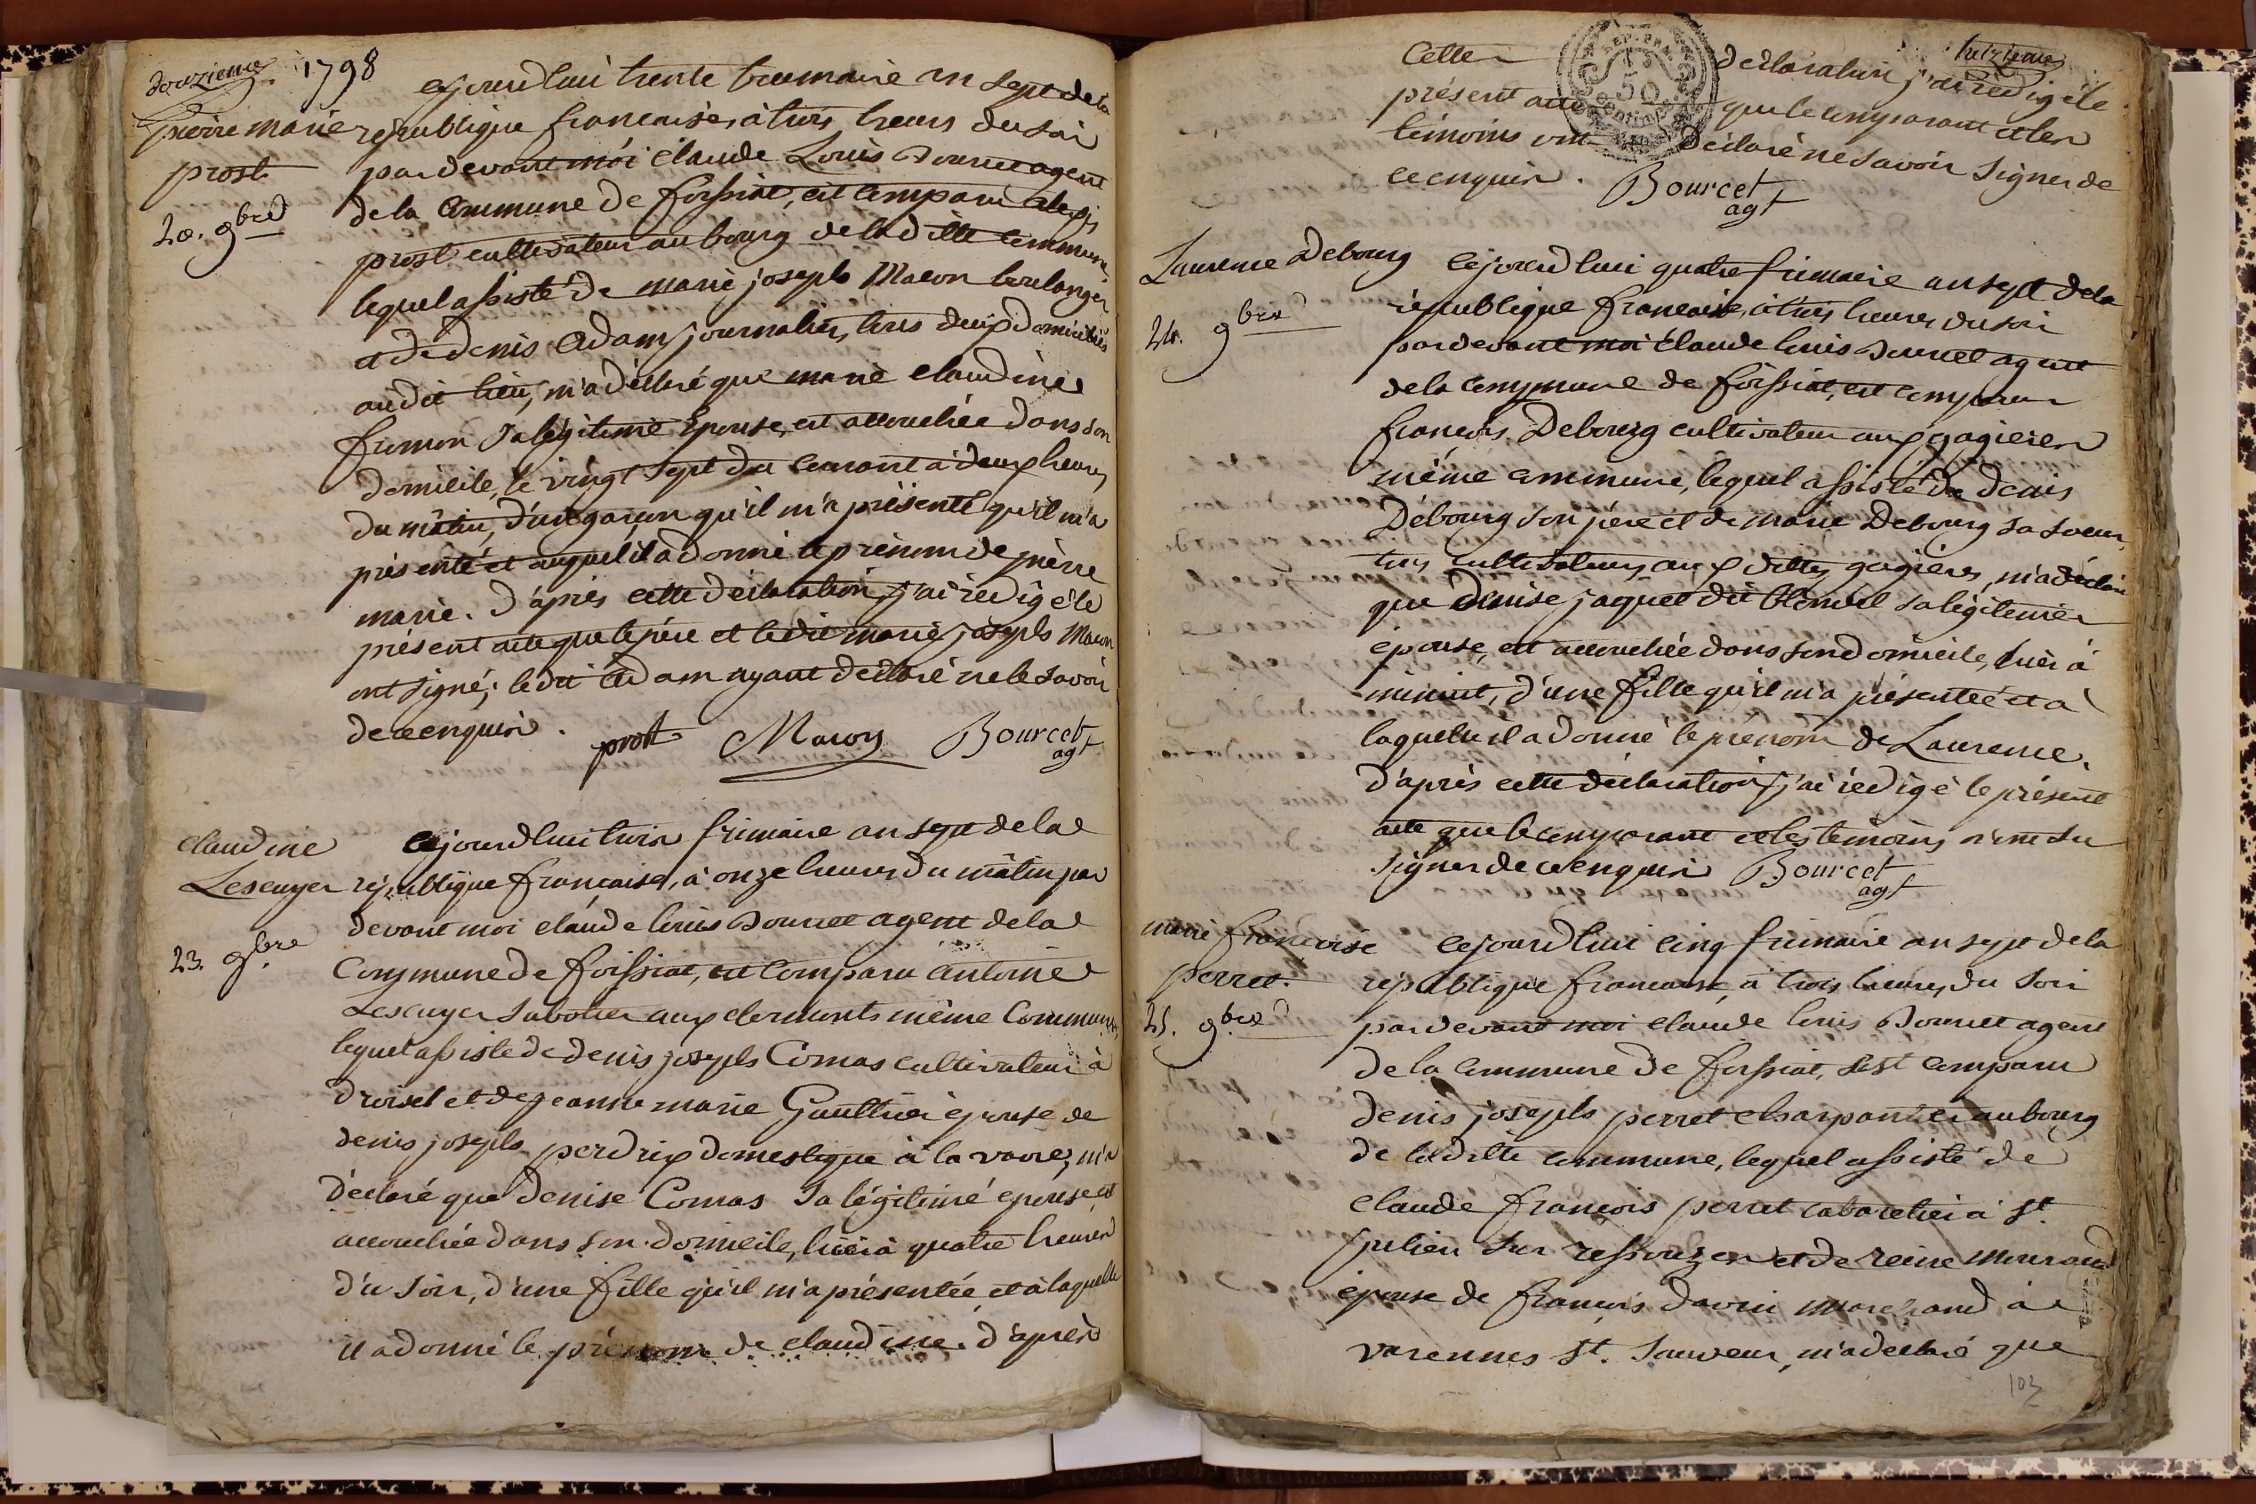 douzieme 1798
cejourd'hui trente brumaire an sept de la
pierre marie
prost
20. 9bre
république francaise, à trois heures du soir
par devant moi claude Louis Bourcet agent
de la commune de foissiat, est comparu alexis
prost cultivateur au bourg de la ditte commune,
lequel assisté de marie joseph Macon boulanger
et de denis Adam journalier, tous deux domiciliés
au dit lieu, m'a déclaré que marie claudine
fromon sa légitime Epouse, est accouchée dans son
domicile, le vingt sept du courant à deux heures
du mâtin, d'un garçon qu'il m'a présenté qu'il m'a
présenté et auquel il a donné le prénom de pierre
marie. D'après cette déclaration, j'ai rédigé le
présent acte que le père et le dit marie joseph Macon
ont signé; le dit Adam ayant déclaré ne le savoir
de ce enquis.
prost Macon Bourcet
agt
claudine
Lescuyer
23. 9bre
cejourd'hui trois frimaire an sept de la
république francaise, à onze heures du mâtin par
devant moi claude louis Bourcet agent de la
Commune de foissiat, est comparu antoine
Lescuyer sabotier aux clermonts même Commune,
lequel assisté de denis joseph Comas cultivateur à
droiset et de jeanne marie Gaulthier épouse de
denis joseph perdrix domestique à la vavre, m'a
déclaré que denise Comas sa légitime épouse, est
accouchée dans son domicile, hier à quatre heures
du soir, d'une fille qu'il m'a présentée et à laquelle
il a donné le prénom de claudine. d'après
treizieme
REP. FRA.
50
centimes
Cette déclaration j'ai rédigé le
présent acte que le comparant et les
témoins ont déclaré ne savoir signer de
ce enquis. Bourcet
agt
Laurence Debourg
24. 9bre
cejourd'hui quatre frimaire an sept de la
république francaise, à trois heures du soir
par devant moi claude louis Bourcet agent
de la commune de foissiat, est comparu
françois Debourg cultivateur aux gagieres
même commune, lequel assisté de denis
Debourg son père et de marie Debourg sa soeur,
tous cultivateurs aux dittes gagières, m'a déclaré
que denise jaquet dit blondel sa légitime
épouse, est accouchée dans son domicile, hier à
minuit, d'une fille qu'il m'a présentée et à
laquelle il a donné le prénom de Laurence,
d'après cette déclaration j'ai rédigé le présent
acte que le comparant et les témoins n'ont su
signer de ce enquis Bourcet
agt
marie francoise
perret.
25. 9bre
cejourd'hui cinq frimaire an sept de la
république francaise, à trois heures du soir
par devant moi claude louis Bourcet agent
de la commune de foissiat, s'est comparu
denis joseph perret charpantier au bourg
de la ditte commune, lequel assisté de
claude françois perret cabaretier à st.
julien sur ressouze et de reine mourand
épouse de françois davin marchand à
varennes st. sauveur, m'a déclaré que
103